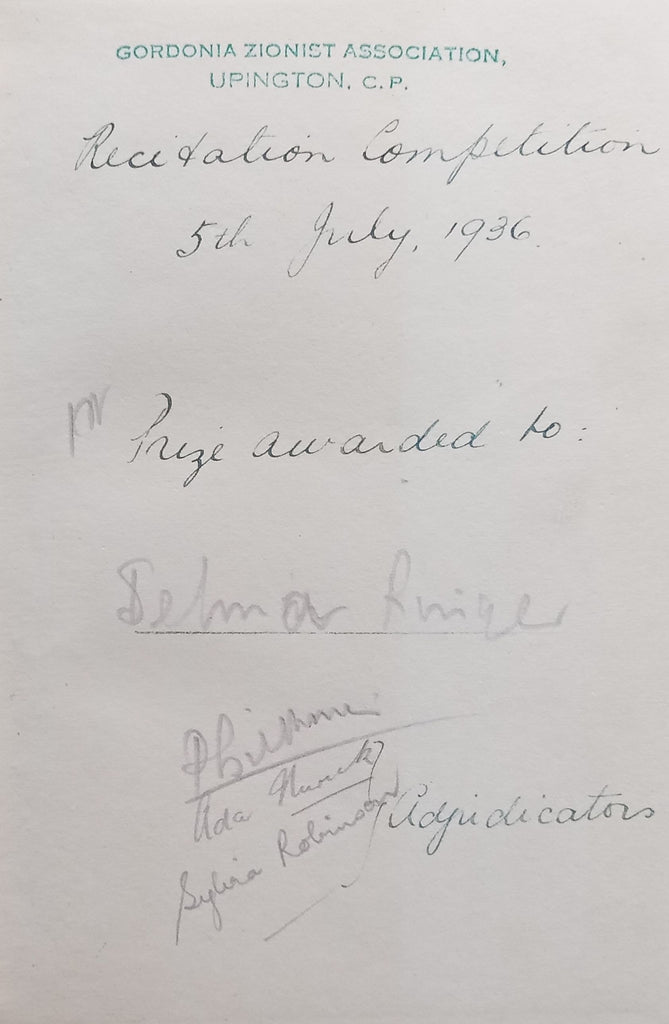 GORDONIA ZIONIST ASSOCIATION,
UPINGTON, C.P.
Recitation Competition
5th July, 1936.
Prize awarded to:
Selmar
Ada
Sylvia Robinson
Adjudicators